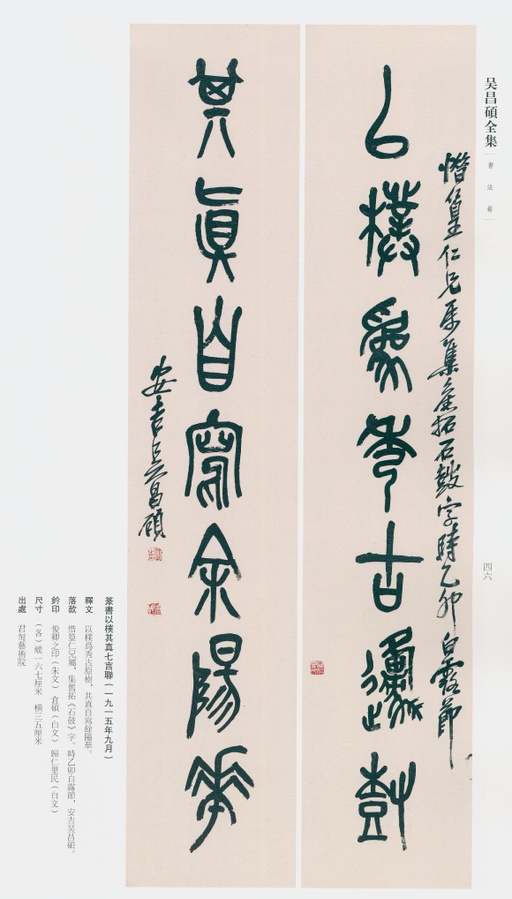 吴昌碩全集
書法卷
四六
惜篁仁兄屬集舊拓石鼓字時乙卯白露節
以樸爲秀古原樹
其真自寫余陽華
安吉吴昌碩
篆書以樸其真七言聯（一九一五年九月）
釋文 以樸爲秀古原樹，其真自寫餘陽華。
落款 惜篁仁兄屬，集舊拓《石鼓》字。時乙卯白露節，安吉吴昌碩。
鈐印 俊卿之印（朱文） 倉碩（白文） 歸仁里民（白文）
尺寸 （各）縱一六七厘米 橫三五厘米
出處 君匋藝術院